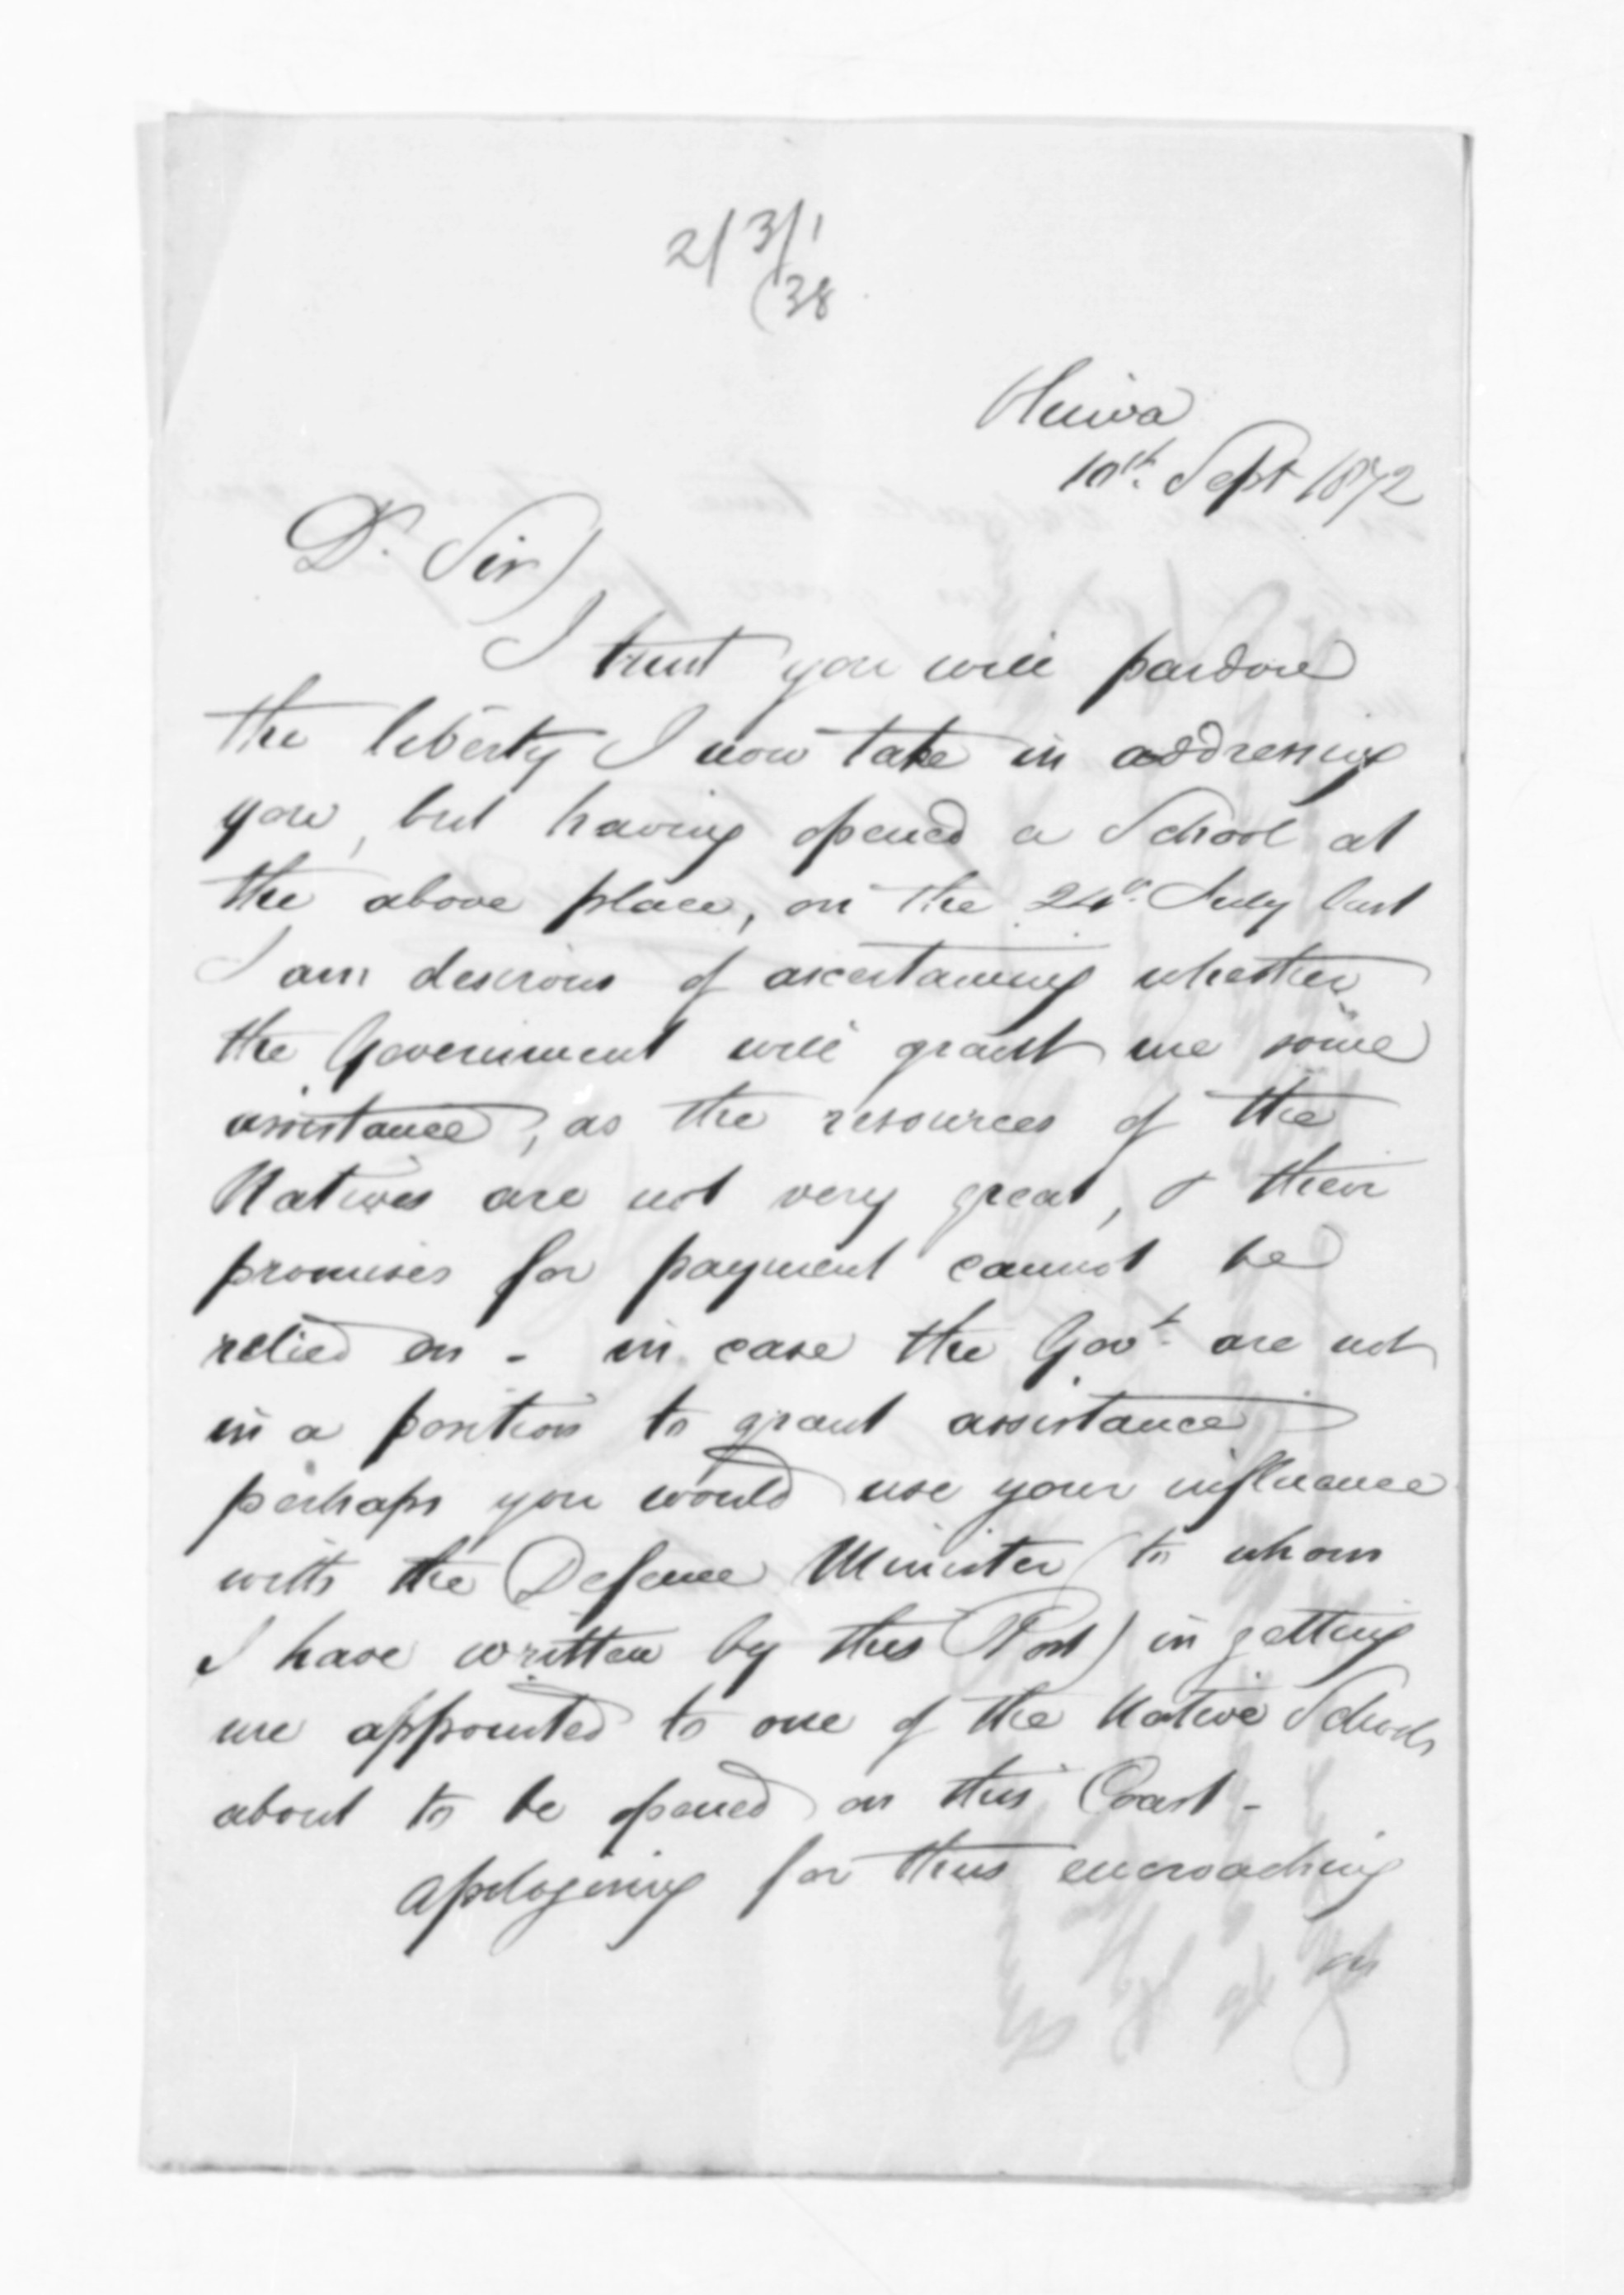 2/3/1
(38
Ohiwa
10th. Sept 1872
Dr. Sir)
I trust you will pardon
the liberty I now take in addressing
you, but having opened a School at
the above place, on the 24th. July last
I am desirous of ascertaining whether
the Government will grant me some
assistance, as the resources of the
Natives are not very great, & their
promises for payment cannot be
relied on - in case the Govt. are not
in a position to grant assistance
perhaps you would use your influence
with the Defence Minister (to whom
I have written by this Post) in getting
me appointed to one of the Native Schools
about to be opened on this Coast -
Apologising for thus encroaching
on